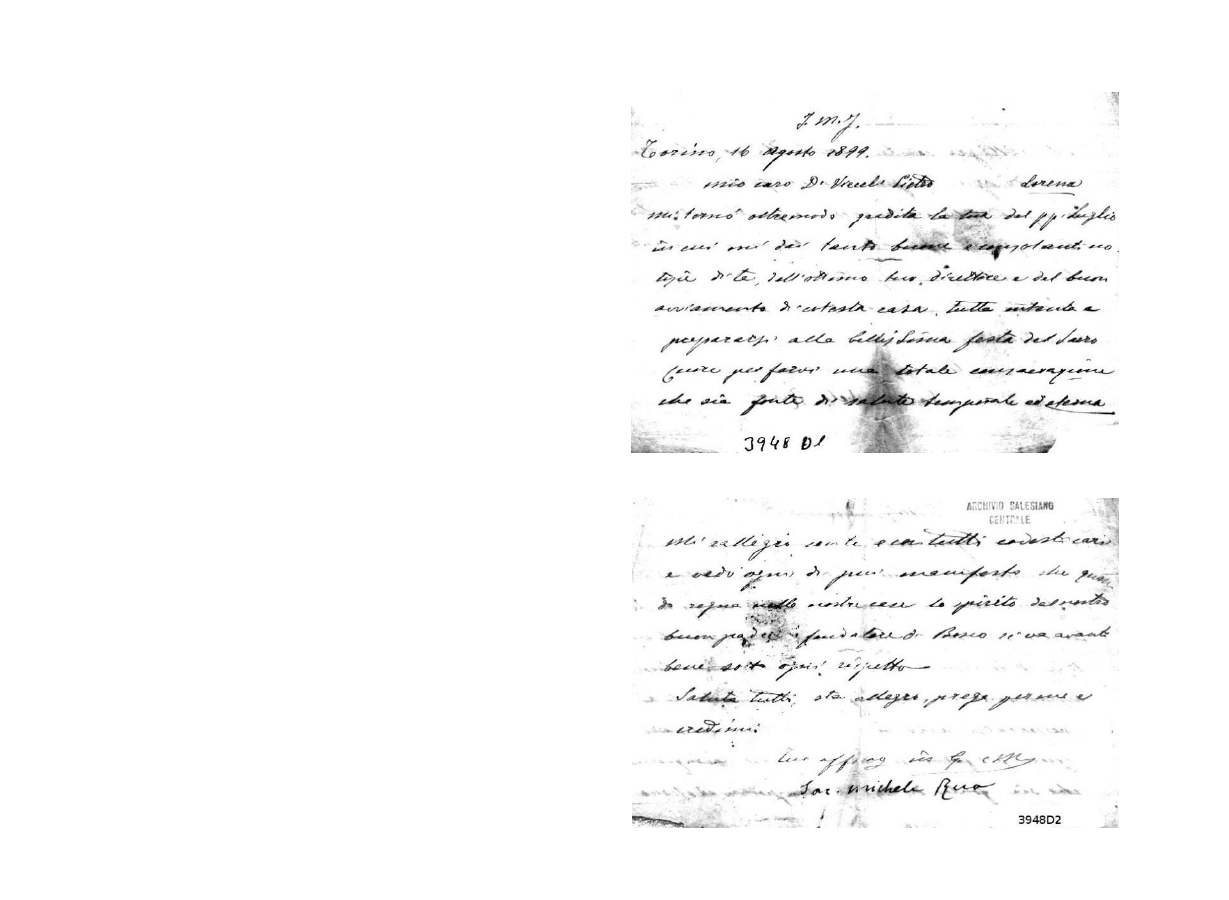 J. M. J.
Torino, 16 Agosto 1899.
Mio caro D. Vicceli Pietro Lorena
Mi tornò oltremodo gradita la tua del pp. Luglio
in cui mi dai tanto buone e consolanti no
tizie di te, dell'ottimo tuo direttore e del buon
avviamento di cotesta casa, tutta intenta a
prepararsi alla bellissima festa del Sacro
Cuore per farvi una totale consacrazione
che sia fonte di salute temporale ed eterna
3948 D1
ARCHIVIO SALESIANO
CENTRALE
Mi rallegro con te e con tutti codesti cari
e vedo ogni dì più manifesto che quan
do regna nelle nostre case lo spirito del nostro
buon padre e fondatore D. Bosco si va avanti
bene sotto ogni rispetto
Saluta tutti, sta allegro, prega per me e
credimi:
tuo affmo in G. e M.
Sac. Michele Rua
3948D2